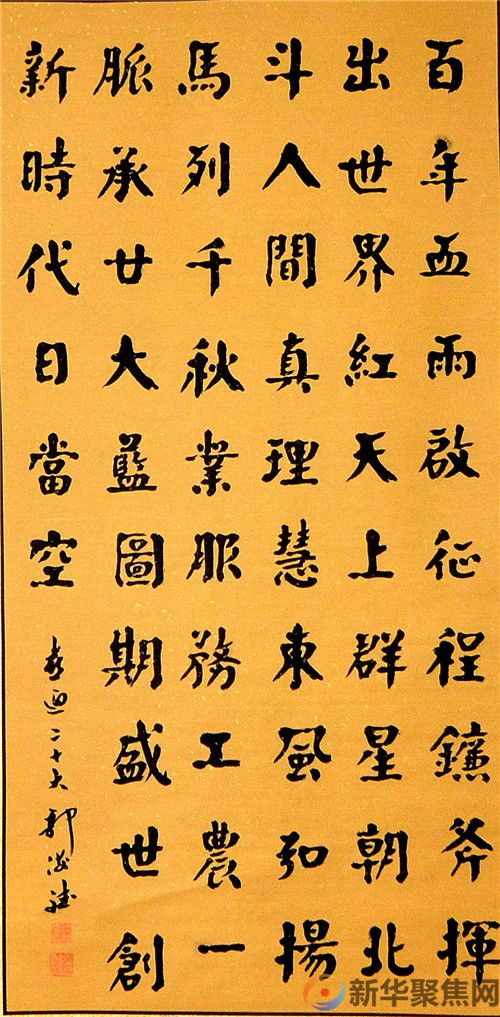 百年血雨啟征程鐮斧揮
出世界紅天上群星朝北
斗人間真理慧東風弘揚
馬列千秋業服務工農一
脈承廿大藍圖期盛世創
新時代日當空
喜迎二十大 郭海
新华聚焦网